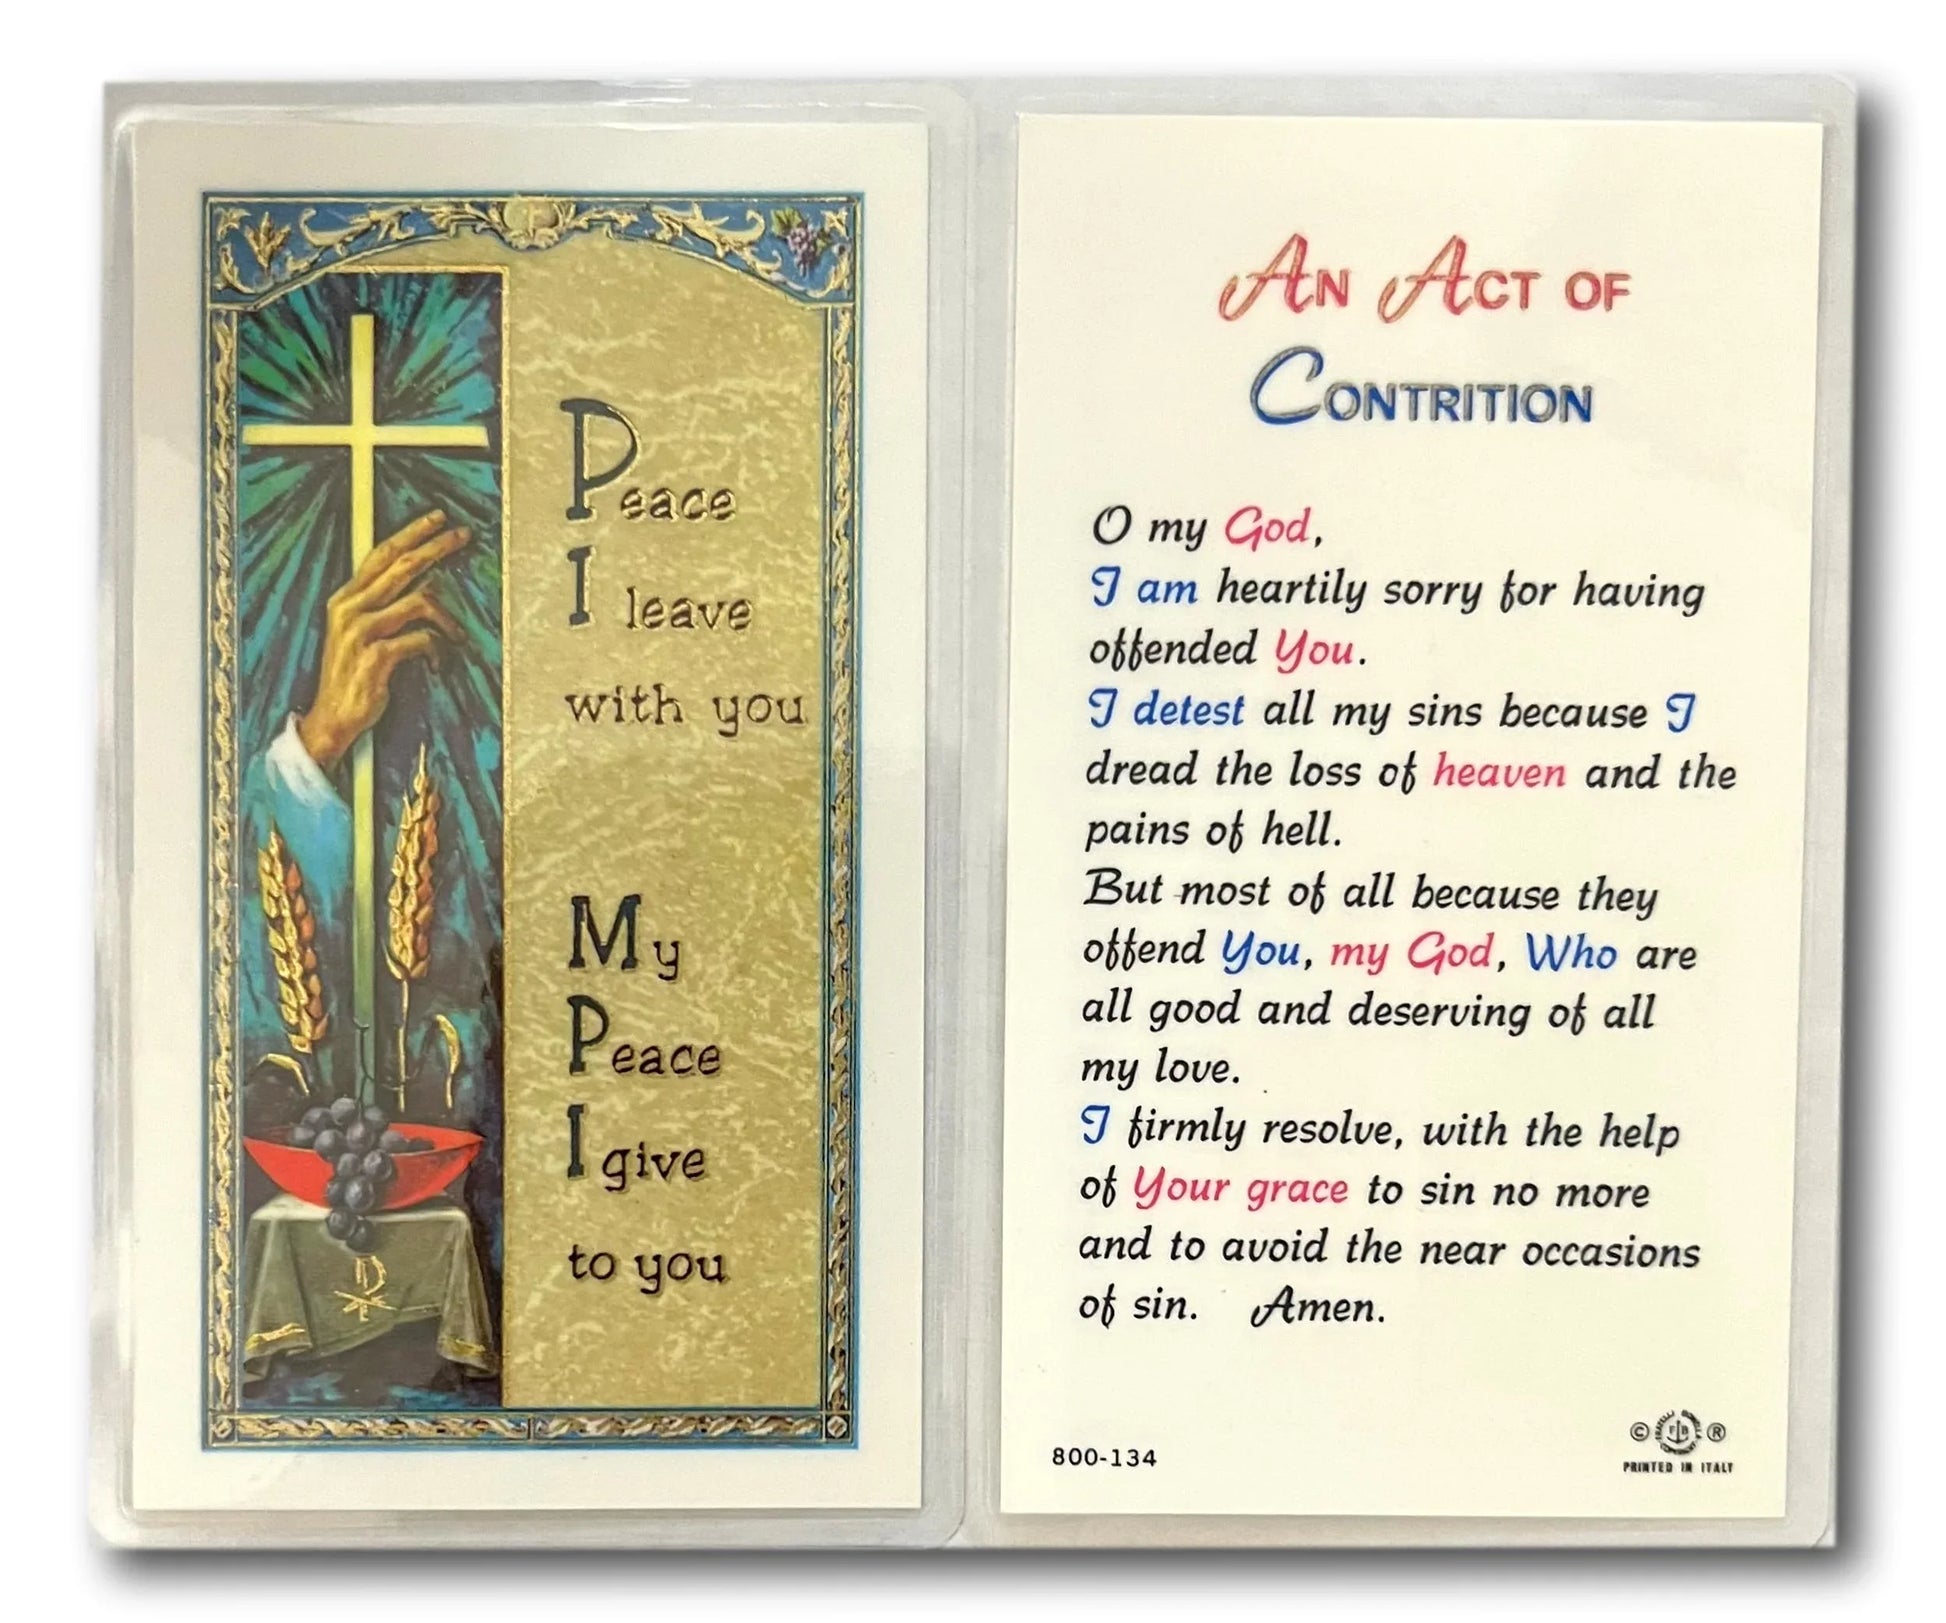 Peace
I leave
with you
My
Peace
I give
to you
An Act of
Contrition
O my God,
I am heartily sorry for having
offended You.
I detest all my sins because I
dread the loss of heaven and the
pains of hell.
But most of all because they
offend You, my God, Who are
all good and deserving of all
my love.
I firmly resolve, with the help
of Your grace to sin no more
and to avoid the near occasions
of sin. Amen.
800-134
© FB ®
PRINTED IN ITALY